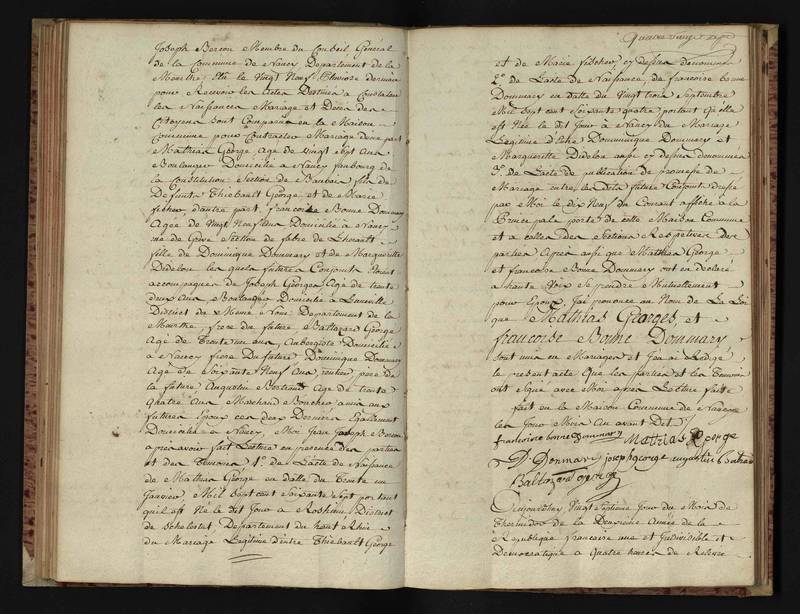 Joseph Berson Membre du Conseil Général
de la Commune de Nancy Departement de la
Meurthe, Elu le Vingt Neuf Pluviose dernier
pour Recevoir les Actes Destinés a Constater
les Naissances Mariage et Décès des
Citoyens Sont Comparus en la Maison
Commune pour Contracter Mariage d'une part
Mathias George Agé de vingt sept ans
Boulanger Domicilié a Nancy faubourg de
la Constitution Section de fils de
Defunt Thiebault George et de Marie
fischer, d'autre part, francoise Bonne Dommary
Agée de Vingt Neuf ans Domiciliée a Nancy
rue de Section de
fille de Dominique Dommary et de Marguerite
Didelon les quels futurs Conjoints Etoient
accompagnés de Joseph Georges Agé de trente
deux ans, Boulanger Domicilié a Luneville
District de Meme Nom Departement de la
Meurthe, frere du futur, Baltazard George
Agé de Trente un ans, Aubergiste Domicilié
a Nancy frere Du futur Dominique Dommary
Agé de Soixante Neuf ans, rentier pere de
la future Augustin Bertrand Agé de trente
quatre ans Marchand Boucher amis aux
futurs Epoux ces deux Derniers Egalement
Domiciliés a Nancy. Moi Jean Joseph Berson
apres avoir fait Lecture en presence des parties
et des Temoins 1.º de L'acte de Naissance
de Mathias George en datte du Trente un
Janvier Mil Sept cent Soixante Sept portant
qu'il est Né le dit Jour a Rosheim District
de Schelestat Departement du haut Rhin
du Mariage Légitime d'entre Thiebault George
Quatre vingt
et de Marie fischer, cy dessus denommés
2.º de L'acte de Naissance de francoise bonne
Dommary en datte du Vingt trois Septembre
Mil Sept cent Soixante quatre portant qu'elle
est Née le dit Jour a Nancy du Mariage
Légitime d'Entre Dominique Dommary et
Marguerite Didelon aussi cy dessus denommés
3.º de L'acte de publication de promesse de
Mariage entre les dits futurs Conjoints dressé
par Moi le dix Neuf du Courant affiché a la
Principale porte de cette Maison Commune
et a celles des Sections Respectives des
parties Apres aussi que Mathias George
et francoise Bonne Dommary ont eu declaré
a haute Voix Se prendre Mutuellement
pour Epoux, J'ai prononcé au Nom de La Loi
que Mathias Georges, et
francoise Bonne Dommary
Sont unis en Mariages et J'en ai Redigé
le present acte Que les parties et les Temoins
ont signé avec Moi apres Lecture faite
fait en la Maison Commune de Nancy
les Jour Mois an avant Dit
francoise bonne Dommary Mathias George
D. Dommary joseph george augustin
Baltazard george
Aujourd'hui Vingt Septieme Jour du Mois de
Thermidor de la Deuxieme Année de la
Republique francaise une et Indivisible et
Democratique a Quatre heures de Relevée